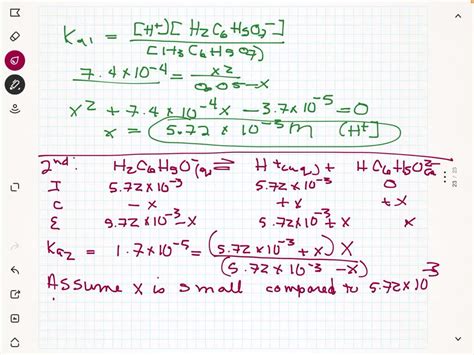 Ka1 = [H+][H2C6H5O7-]
[H3C6H5O7]
7.4×10-4 = x2
0.05-x
x2 + 7.4×10-4x - 3.7×10-5 = 0
x = 5.72 × 10-3 M (H+]
2nd: H2C6H5O-(aq) ⇌ H+(aq) + HC6H5O2-
I 5.72×10-3 5.72×10-3 0
C -x +x +x
E 5.72×10-3-x 5.72×10-3+x x
Ka2 = 1.7×10-5 = (5.72×10-3+x) x
(5.72×10-3-x)
Assume x is small compared to 5.72×10-3
23 / 25